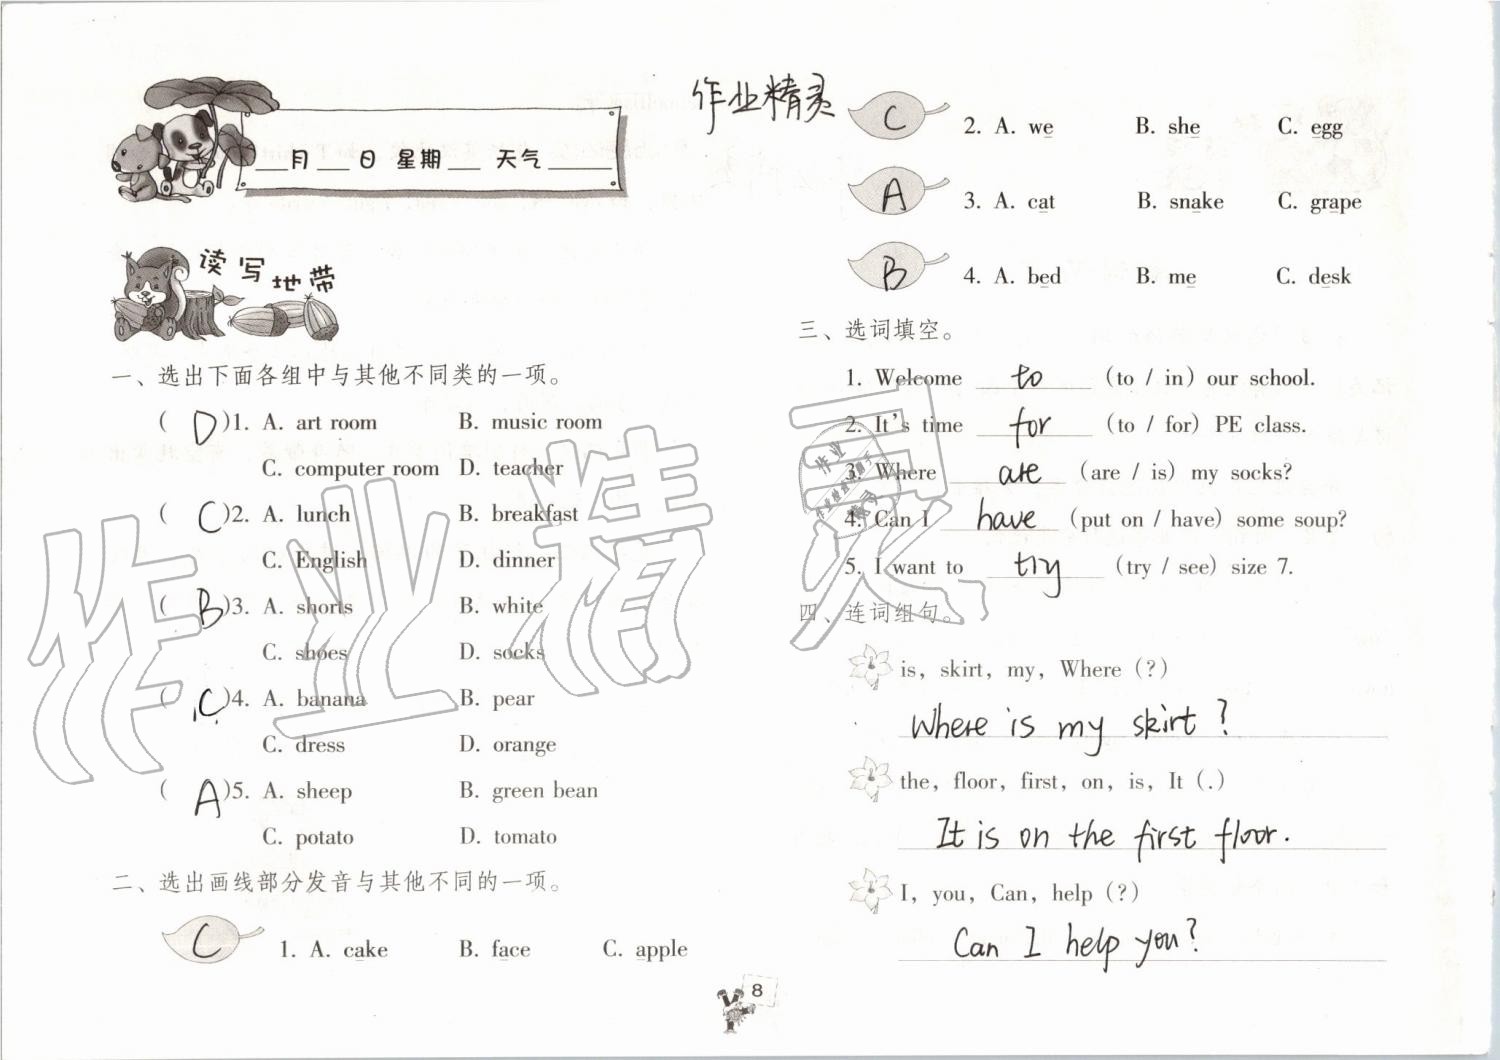 月 日 星期 天气
读写地带
一、选出下面各组中与其他不同类的一项。
( D )1. A. art room B. music room
C. computer room D. teacher
( C )2. A. lunch B. breakfast
C. English D. dinner
( B )3. A. shorts B. white
C. shoes D. socks
( C )4. A. banana B. pear
C. dress D. orange
( A )5. A. sheep B. green bean
C. potato D. tomato
二、选出画线部分发音与其他不同的一项。
C 1. A. cake B. face C. apple
作业精灵
C 2. A. we B. she C. egg
A 3. A. cat B. snake C. grape
B 4. A. bed B. me C. desk
三、选词填空。
1. Welcome to (to / in) our school.
2. It's time for (to / for) PE class.
3. Where are (are / is) my socks?
4. Can I have (put on / have) some soup?
5. I want to try (try / see) size 7.
四、连词组句。
is, skirt, my, Where (?)
Where is my skirt?
the, floor, first, on, is, It (.)
It is on the first floor.
I, you, Can, help (?)
Can I help you?
8
作业精灵